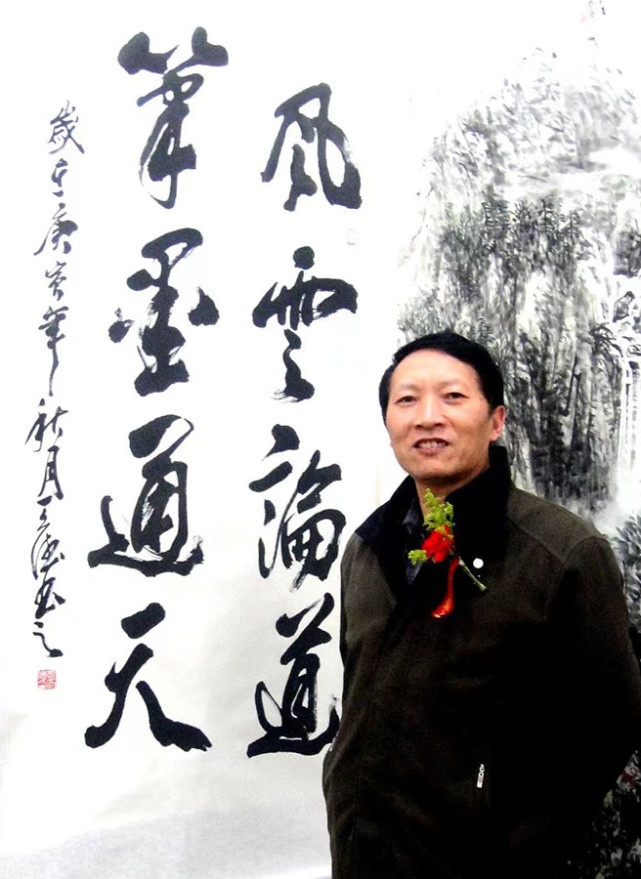 風雲論道
筆墨通天
歲在庚寅年秋月
書之